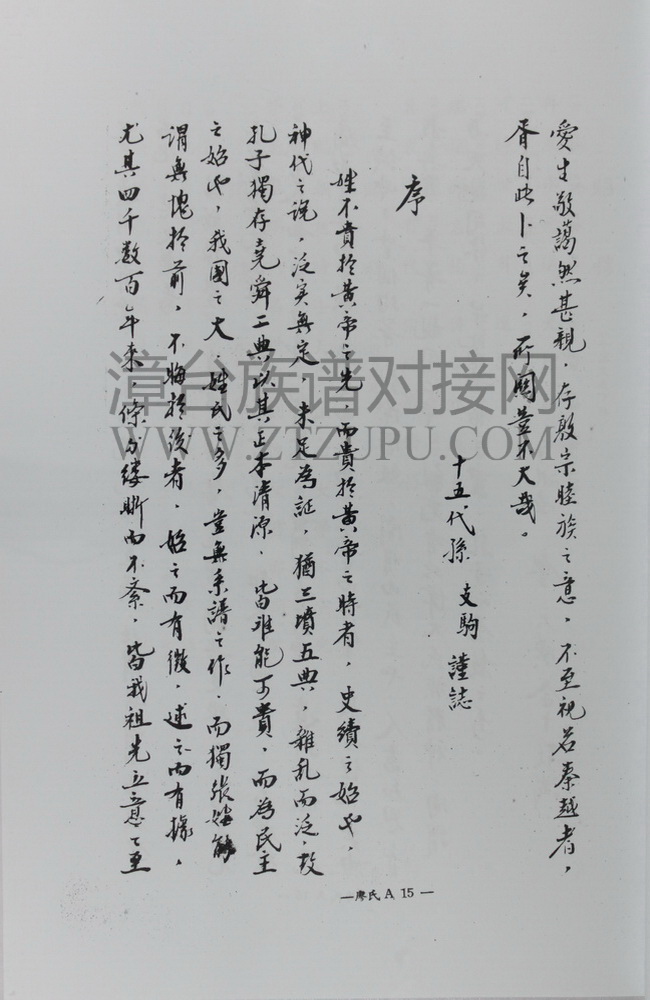 愛生敬藹然甚親，存殷宗睦族之意，不至視若秦越者，
胥自此卜之矣，所關豈不大哉。
十五代孫 支駒 謹誌
序
姓不貴於黃帝之先，而貴於黃帝之時者，史績之始也，
神代之說，泛实無定，未足為証，猶三墳五典，雜乱而泛，故
孔子獨存堯舜二典以其正本清源，皆难能可貴，而為民主
之始也，我國之大，姓氏之多，豈無系譜之作．而獨張廖能
謂無愧於前，不悔於後者，始之而有徵，述之而有據，
尤其四千数百年来，條分縷晰而不紊，皆我祖先立意之至
漳台族谱对接网
WWW.ZTZUPU.COM
—廖氏 A 15—